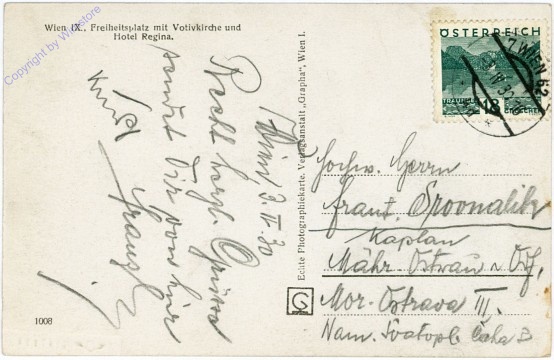 Wien IX., Freiheitsplatz mit Votivkirche und
Hotel Regina.
Copyright by Wiedstore
Wien 3. IV. 30
Recht herzl. Grüsse
sendet Dir von hier
Franzl
Echte Photographiekarte. Verlagsanstalt „Grapha", Wien I.
ÖSTERREICH
18
GROSCHEN
7 WIEN 62
Hochw. Herrn
Frant.
Kaplan
Mähr. Ostrau
Mor. Ostrava III.
Nam. Svatopl. Čecha
G
1008